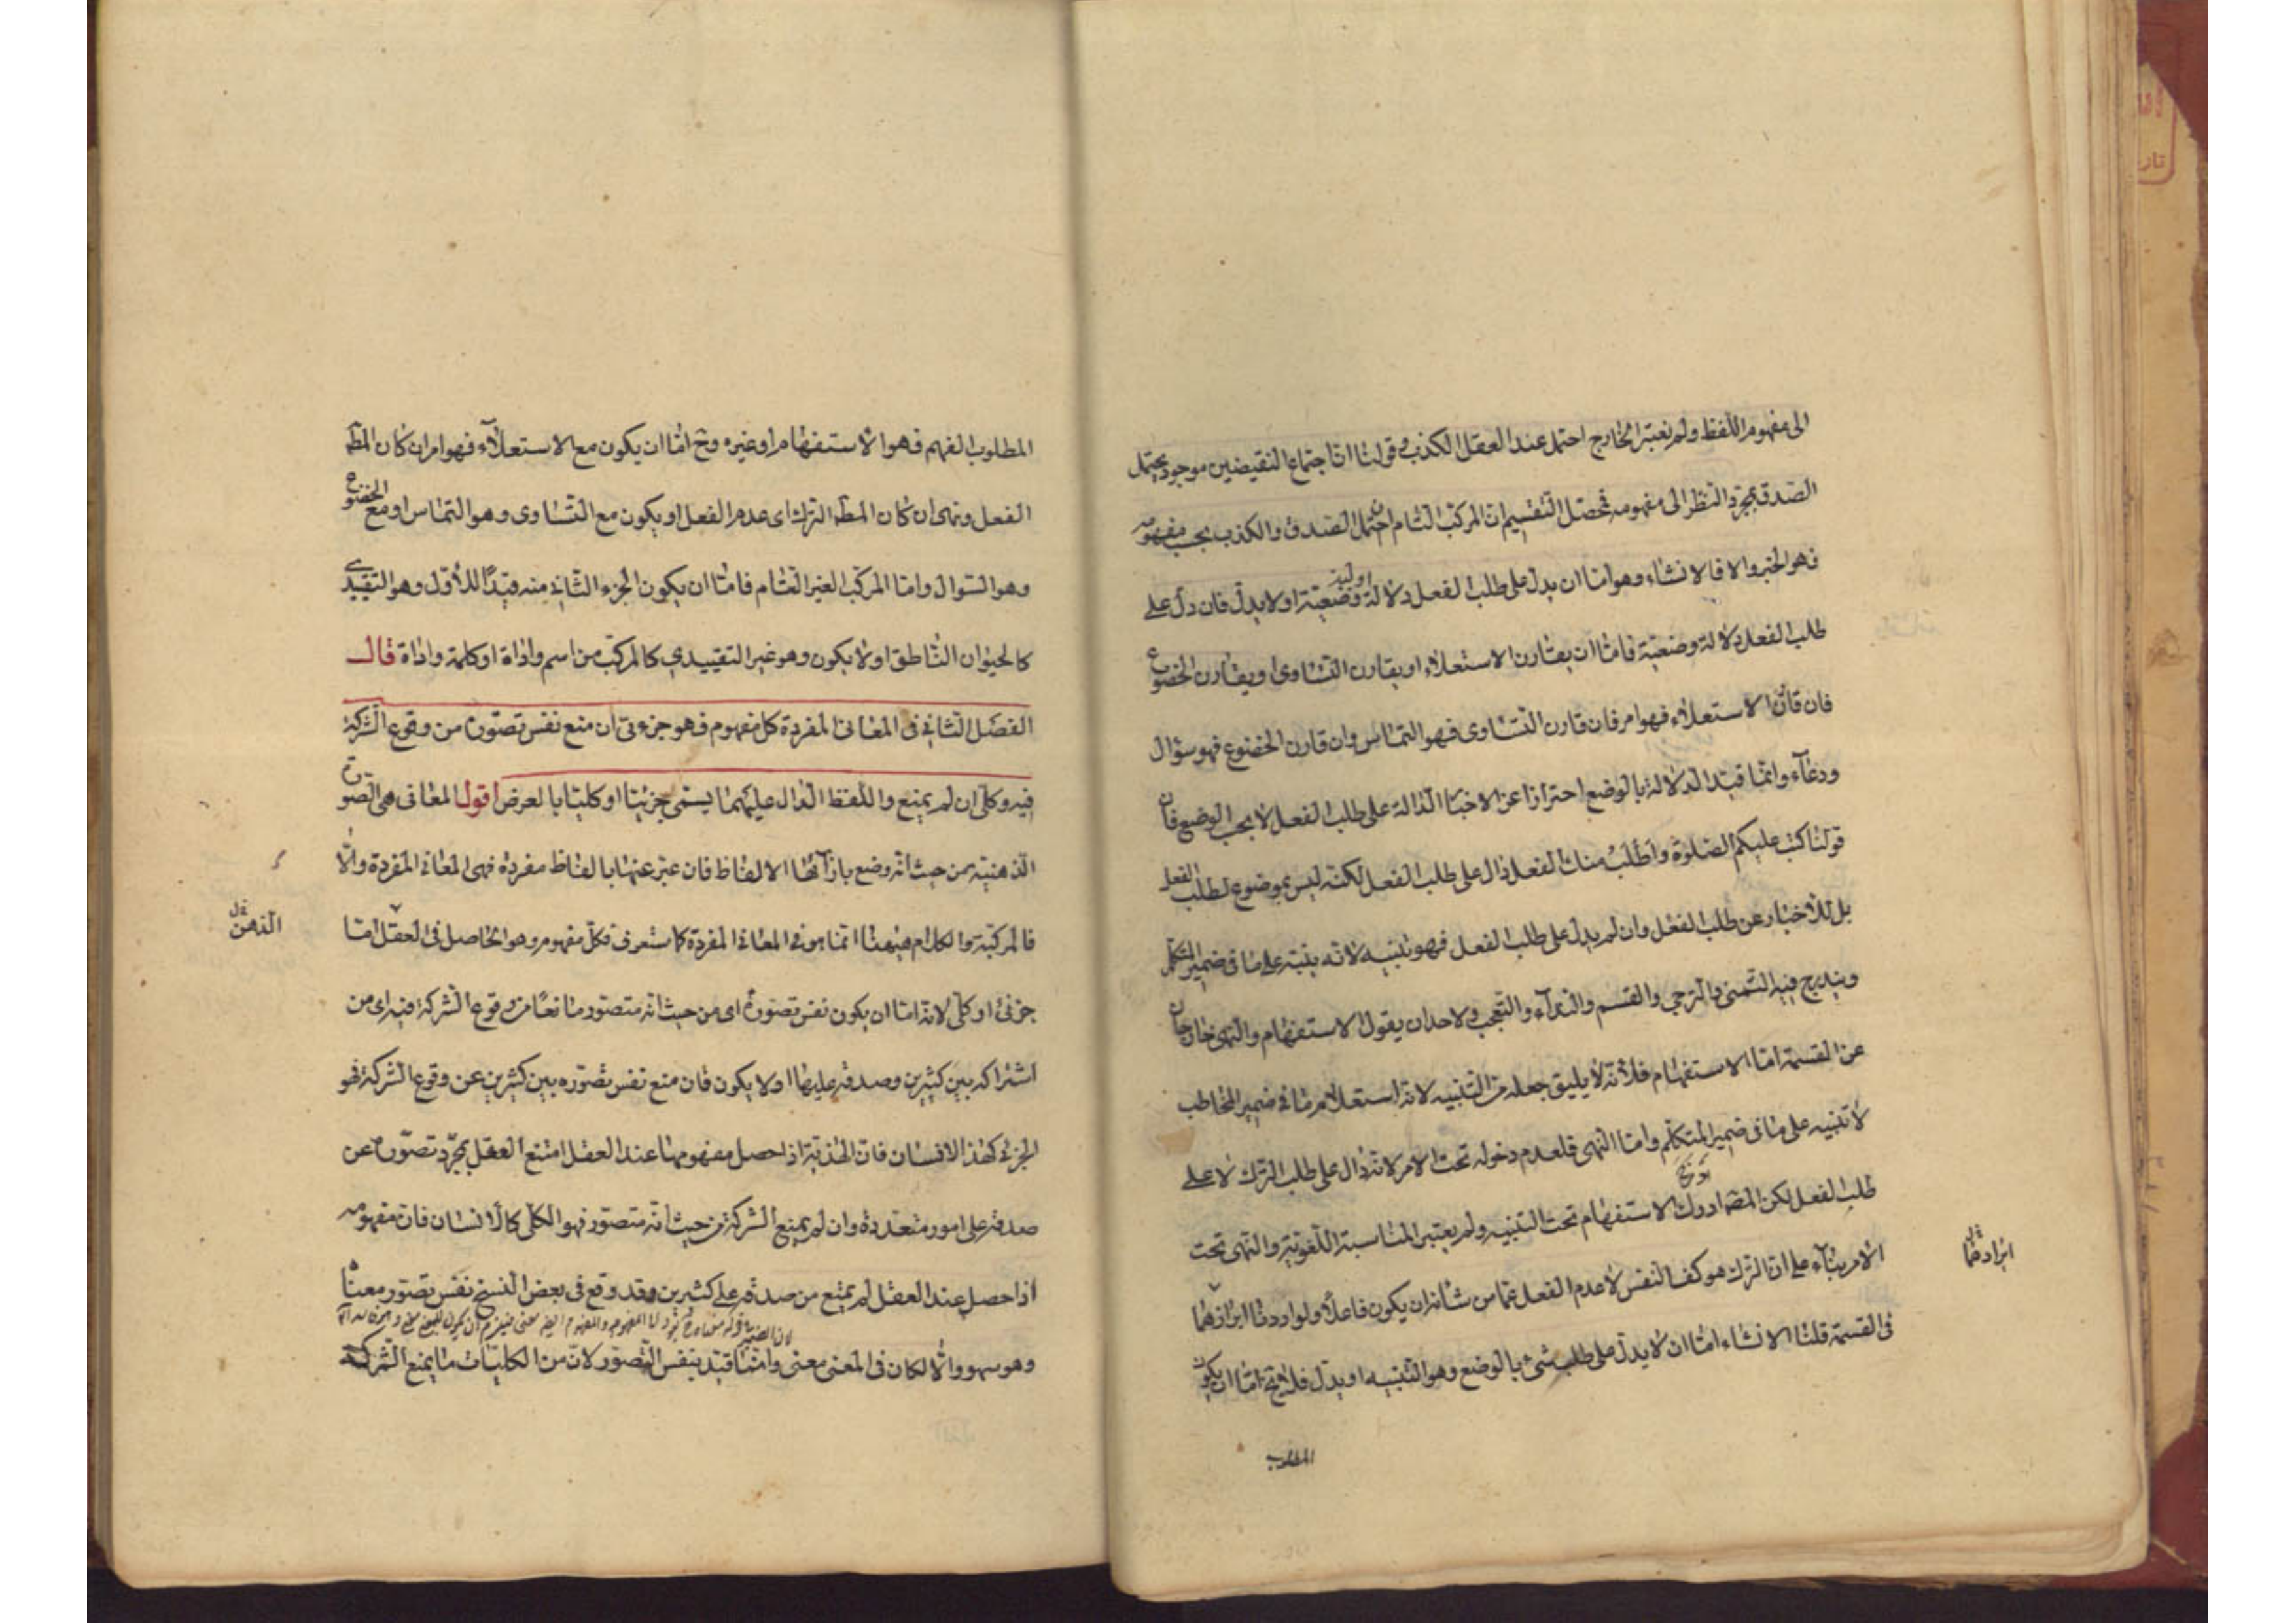 الى مفهوم اللفظ ولم نعتبر الخارج احتمل عند العقل الكذب وقولنا اجتماع النقيضين موجود يحتمل
الصدق بمجرد النظر الى مفهومه فمحصّل التقسيم ان المركب التام ان احتمل الصدق والكذب بحسب مفهومه
فهو الخبر والا فالانشاء وهو امّا ان يدل على طلب الفعل دلالة وضعيّة او لا يدلّ فان دلّ على
اوليّة
طلب الفعل دلالة وضعيّة فامّا ان يقارن الاستعلاء او يقارن التساوى او يقارن الخضوع
فان قارن الاستعلاء فهو امر فان قارن التساوى فهو التماس وان قارن الخضوع فهو سؤال
ودعآء وانّما قيّد الدلالة بالوضع احترازا عن الاخبار الدّالة على طلب الفعل لا بحسب الوضع فان
قولنا كتب عليكم الصّلوة واَطْلُبُ منك الفعل دال على طلب الفعل لكنّه ليس بموضوع لطلب الفعل
بل للأخبار عن طلب الفعل وان لم يدلّ على طلب الفعل فهو تنبيه لانّه ينبّه على ما فى ضمير المتكلّم
ويندرج فيه التمنى والترجي والقسم والندآء والتعجب ولاحد ان يقول الاستفهام والنهى خارجان
عن القسمة امّا الاستفهام فلأنّه لا يليق جعله من التّنبيه لانّه استعلام ما فى ضمير المخاطب
لا تنبيه على ما فى ضمير المتكلّم وامّا النّهى فلعدم دخوله تحت الامر لانّه دالّ على طلب الترك لا على
طلب الفعل لكن المصّ ادرج الاستفهام تحت التنبيه ولم يعتبر المناسبة اللّغويّة والنّهى تحت
الامر بنآء على انّ الترك هو كفّ النفس لا عدم الفعل عمّا من شانه ان يكون فاعلًا ولو اردنا ايرادهما
ايرادهما
فى القسمة قلنا الانشاء امّا ان لا يدلّ على طلب شئ بالوضع وهو التنبيه او يدلّ فلا يخ امّا ان يكون
المطلوب
المطلوب الفهم فهو الاستفهام او غيره وح امّا ان يكون مع الاستعلاء فهو امر ان كان المطّ
الفعل ونهى ان كان المطّ الترك اى عدم الفعل او يكون مع التّساوى وهو التماس او مع الخضوع
وهو السّؤال وامّا المركّب الغير التّام فامّا ان يكون الجزء الثّانى منه قيدًا للأوّل وهو التقييدى
كالحيوان الناطق او لا يكون وهو غير التقييدي كالمركّب من اسم واداة او كلمة واداة قال
الفصل الثانى فى المعانى المفردة كل مفهوم فهو جزءىّ ان منع نفس تصوّره من وقوع الشركة
فيه وكلّى ان لم يمنع واللّفظ الدّال عليهما يسمى جزئيّا او كليّا بالعرض اقول المعانى هى الصّور
الذّهنيّة من حيث انّه وضع بازآئها الالفاظ فان عبّر عنها بالفاظ مفردة فهى المعانى المفردة والّا
فالمركّبة والكلام هيهنا انّما هو فى المعانى المفردة كما ستعرف فكلّ مفهوم وهو الحاصل فى العقل امّا
الذهن
جزئى او كلّى لانّه امّا ان يكون نفس تصوّره اى من حيث انّه متصور مانعًا من وقوع الشركة فيه اى من
اشتراكه بين كثيرين وصدقه عليها او لا يكون فان منع نفس تصوّره بين كثيرين عن وقوع الشركة فهو
الجزئى كهذا الانسان فانّ الهذيّة اذا حصل مفهومها عند العقل امتنع العقل بمجرّد تصوّره عن
صدقه على امور متعدّدة وان لم يمنع الشركة من حيث انّه متصوّر فهو الكلّى كالأنسان فانّ مفهومه
اذا حصل عند العقل لم يمتنع من صدقه على كثيرين وقد وقع فى بعض النسخ نفس تصوّر معناه
وهو سهو والّا لكان فى المعنى معنى وانّما قيّد بنفس التّصوّر لانّ من الكليّات ما يمنع الشركة